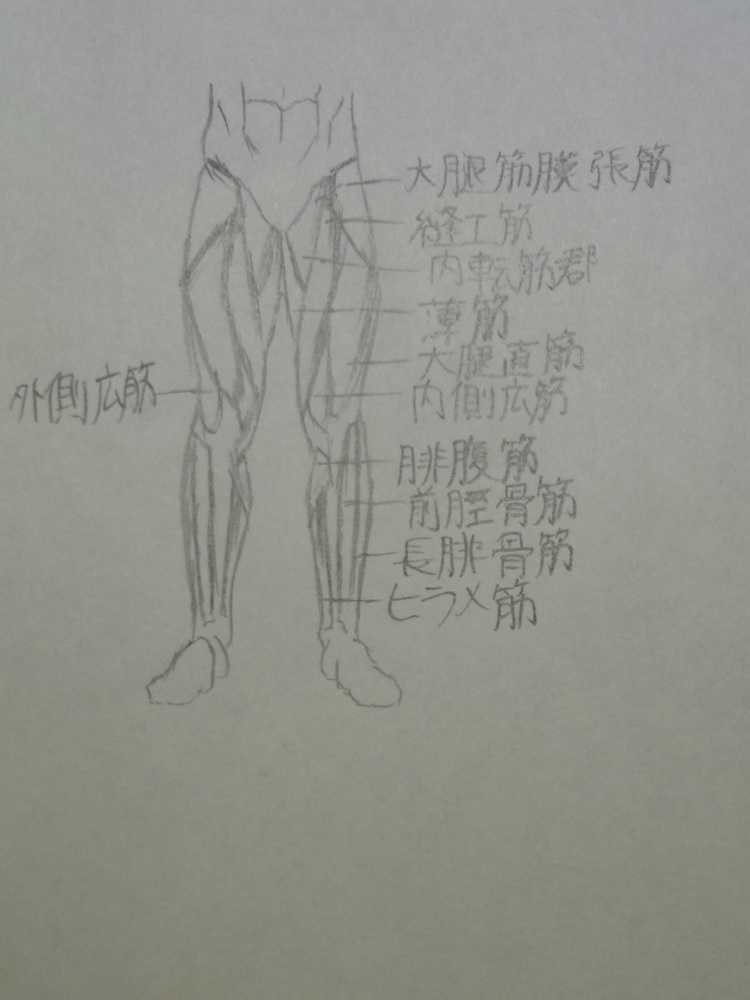 大腿筋膜張筋
縫工筋
内転筋郡
薄筋
大腿直筋
外側広筋
内側広筋
腓腹筋
前脛骨筋
長腓骨筋
ヒラメ筋